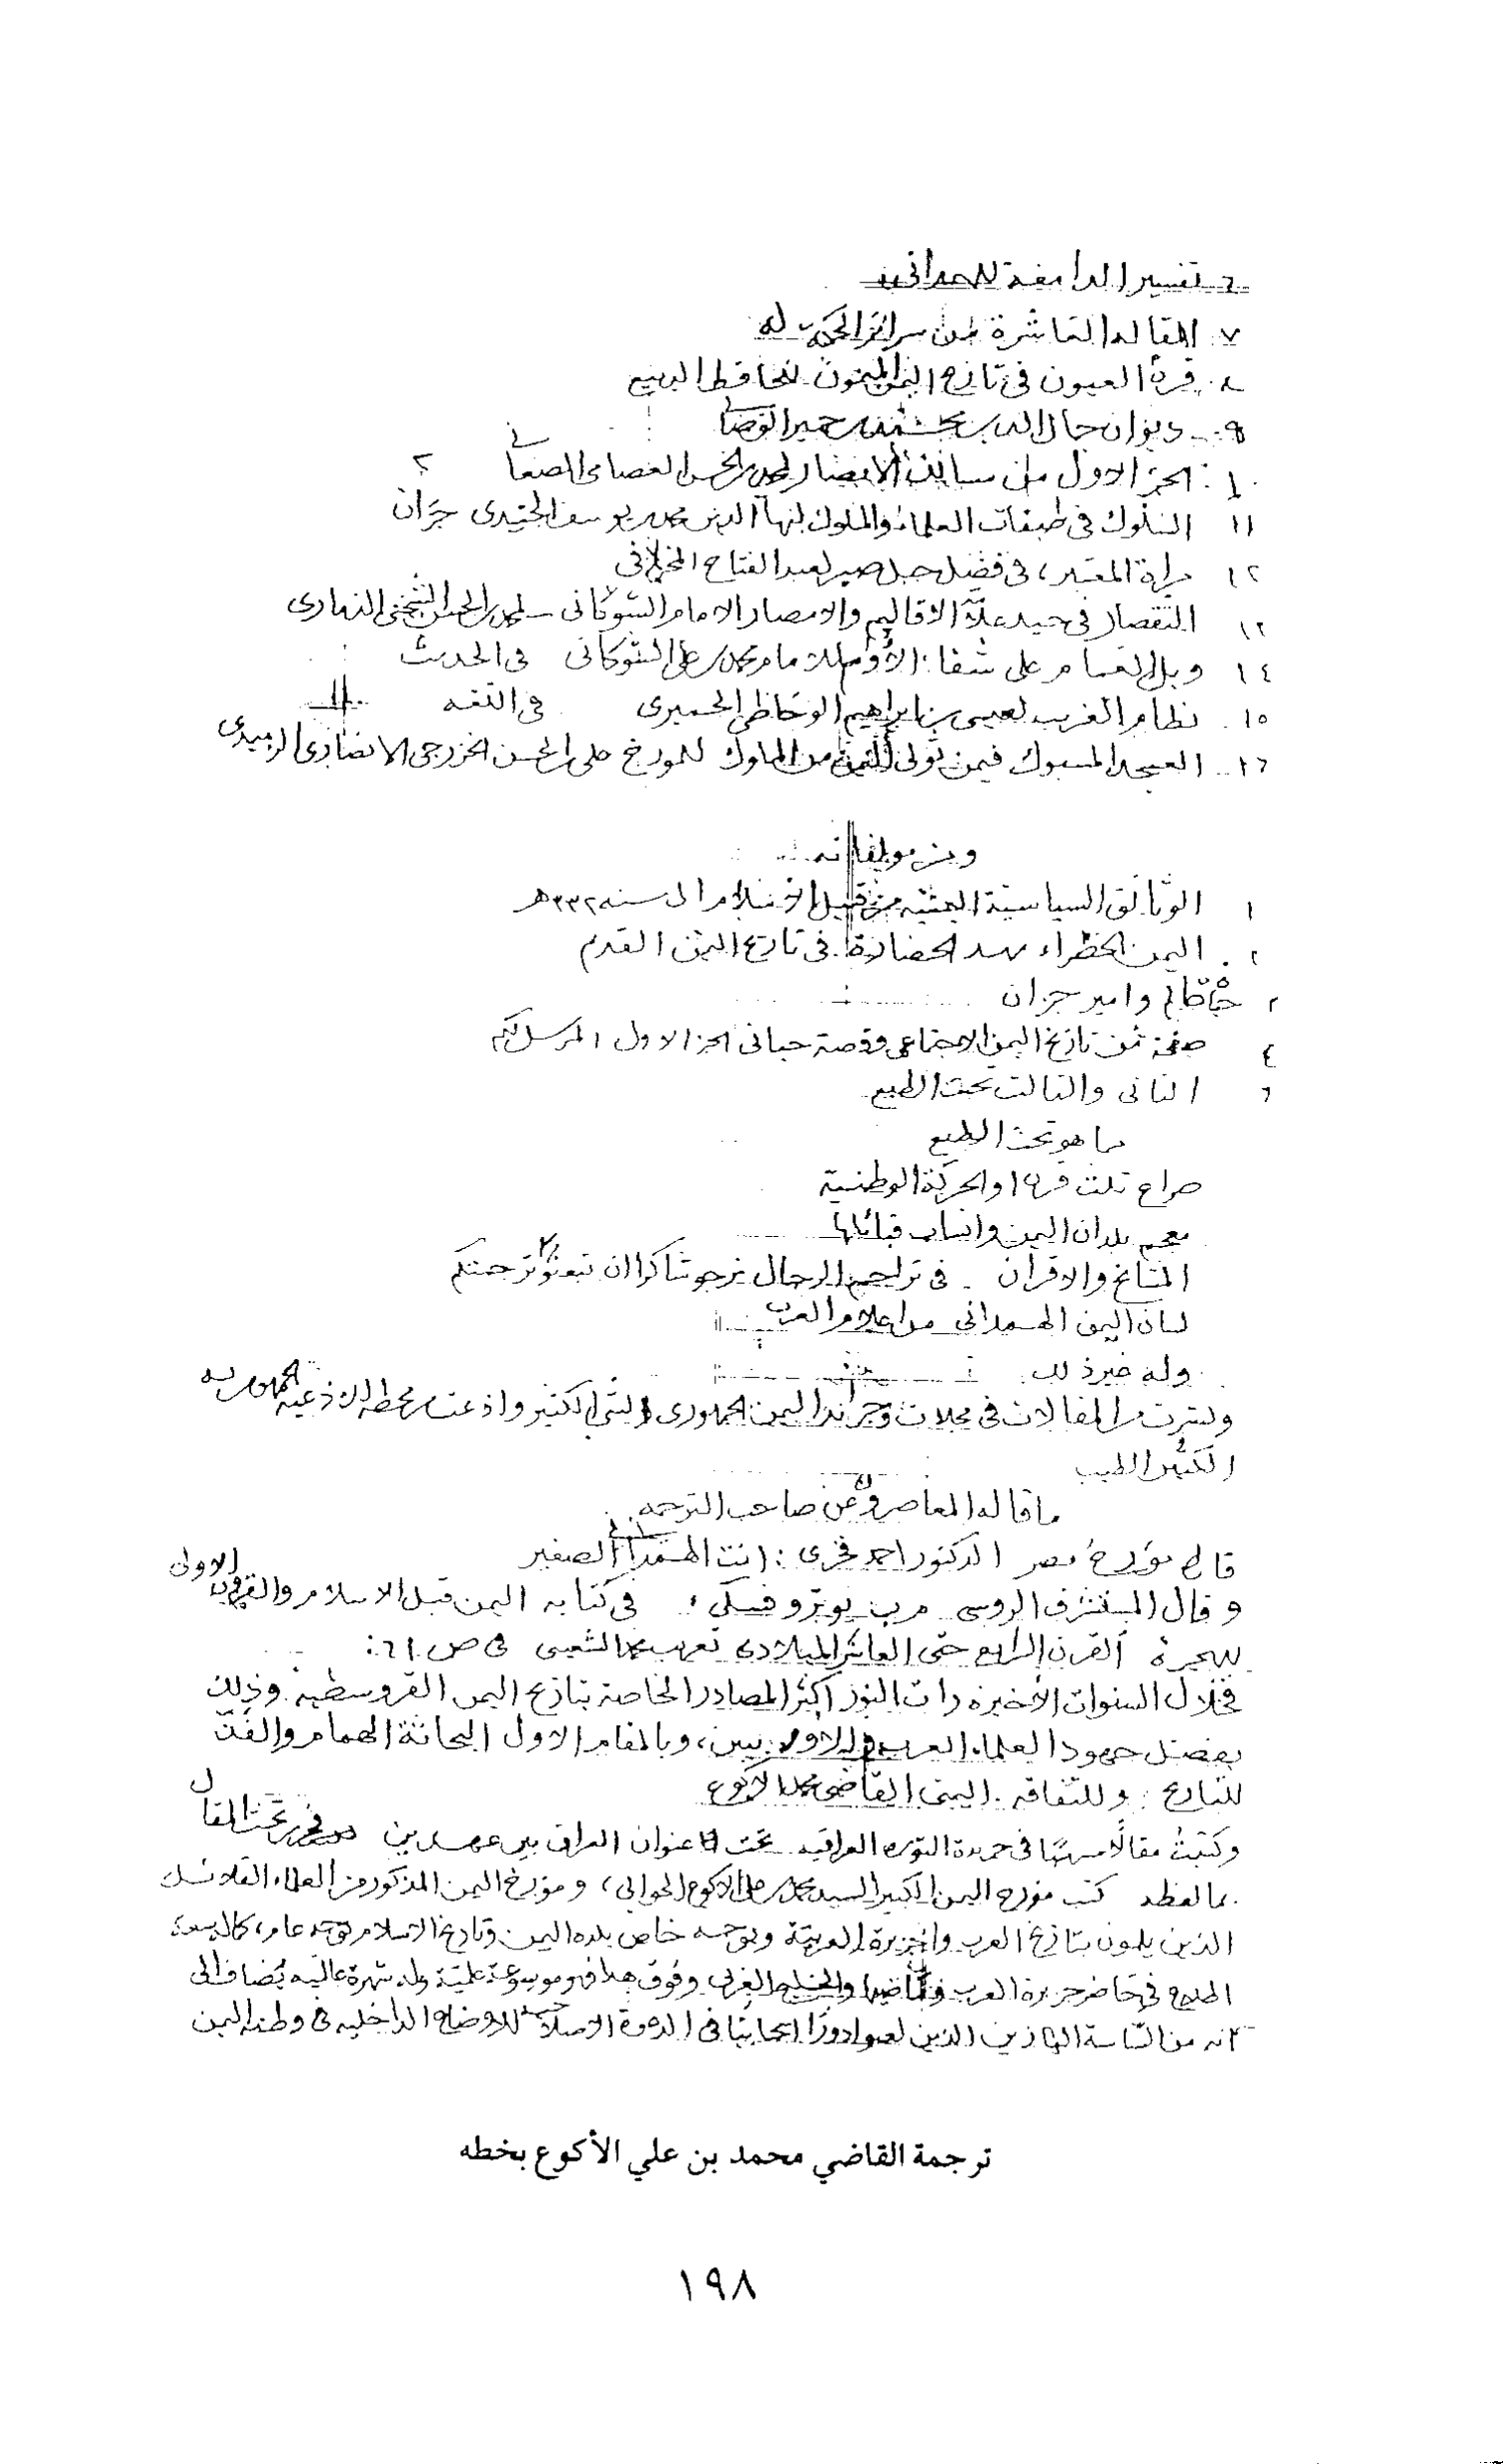 ٦ - تفسير الدامغة للهمداني
٧ - المقالة العاشرة من سرائر الحكمة له
٨ - قرة العيون في تاريخ اليمن الميمون للحافظ الديبع
٩ - ديوان
١٠ - الجزء الاول من
١١ السلوك في طبقات العلماء والملوك لبهاء الدين محمد بن يوسف الجندي جزآن
١٢ مرآة المعتبر في فضل جبل صبر لعبد الفتاح المخلافي
١٣ التقصار في جيد علامة الاقاليم والامصار الامام الشوكاني - لمحمد بن الحسن الشجني الذماري
١٤ وبل الغمام على شفاء الأوام للامام محمد بن علي الشوكاني في الحديث
١٥ - نظام الغريب لعيسى بن ابراهيم الوحاظي الحميري في اللغة
١٦ - العسجد المسبوك فيمن تولى اليمن من الملوك للمؤرخ علي بن الحسن الخزرجي الانصاري الزبيدي
ومن مؤلفاته
١ الوثائق السياسية اليمنية من قبيل الاسلام الى سنه ٣٣٢هـ
٢ . اليمن الخضراء مهد الحضارة في تاريخ اليمن القديم
٣ حياة عالم وامير جزان
٤ صفحة من تاريخ اليمن الاجتماعي وقصة حياتي الجزء الاول المرسل لكم
٦ الثاني والثالث تحت الطبع
ما هو تحت الطبع
صراع ثلث قرن او الحركة الوطنية
معجم بلدان اليمن وانساب قبائلها
المشائخ والاقران . في تراجم الرجال نرجو شاكرا ان تبعثوا ترجمتكم
لسان اليمن الهمداني من اعلام العرب
وله غير ذلك
ونشرت من المقالات في مجلات وجرائد اليمن الجمهوري الشيء الكثير واذعت من محطه الاذاعيه الجمهوريه
الكثير الطيب
ما قاله المعاصرون عن صاحب الترجمه
قال لي مؤرخ مصر الدكتور احمد فخري : انت الهمداني الصغير
وقال المستشرق الروسي م ب بيوتروفسكي في كتابه اليمن قبل الاسلام والقرون الاولى
للهجرة القرن الرابع حتى العاشر الميلادي تعريب محمد الشعيبي في ص ٦١ :
فخلال السنوات الأخيرة رات النور اكثر المصادر الخاصة بتاريخ اليمن القروسطية وذلك
بفضل جهود العلماء العرب والاوروبيين، وبالمقام الاول البحاثة الهمام والفذ
للتاريخ وللثقافة اليمني القاضي محمد الاكوع
وكتبت مقالا مسهبا في جريدة الثورة العراقيه تحت عنوان العراق بين عهدين تحت المقال
بما لفظه كتب مؤرخ اليمن الكبير السيد محمد بن علي الاكوع الحوالي، ومؤرخ اليمن المذكور من العلماء القلائل
الذين يلمون بتاريخ العرب والجزيرة العربية وبوجه خاص بلده اليمن وتاريخ الاسلام بوجه عام، كما ليسعه
في حاضر جزيرة العرب وماضيها والخليج العربي وفوق هذا فهو موسوعة علمية وله شهرة عاليه يضاف الى
انه من الساسة البارزين الذين لعبوا دورًا ايجابيًا في الدعوة الاصلاحية للاوضاع الداخليه في وطنه اليمن
ترجمة القاضي محمد بن علي الأكوع بخطه
١٩٨